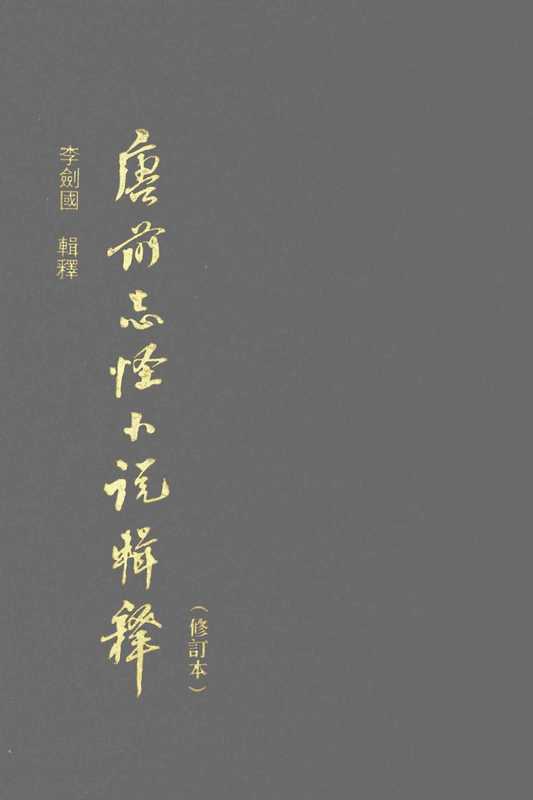 唐前志怪小说輯釋
(修訂本)
李劍國 輯釋